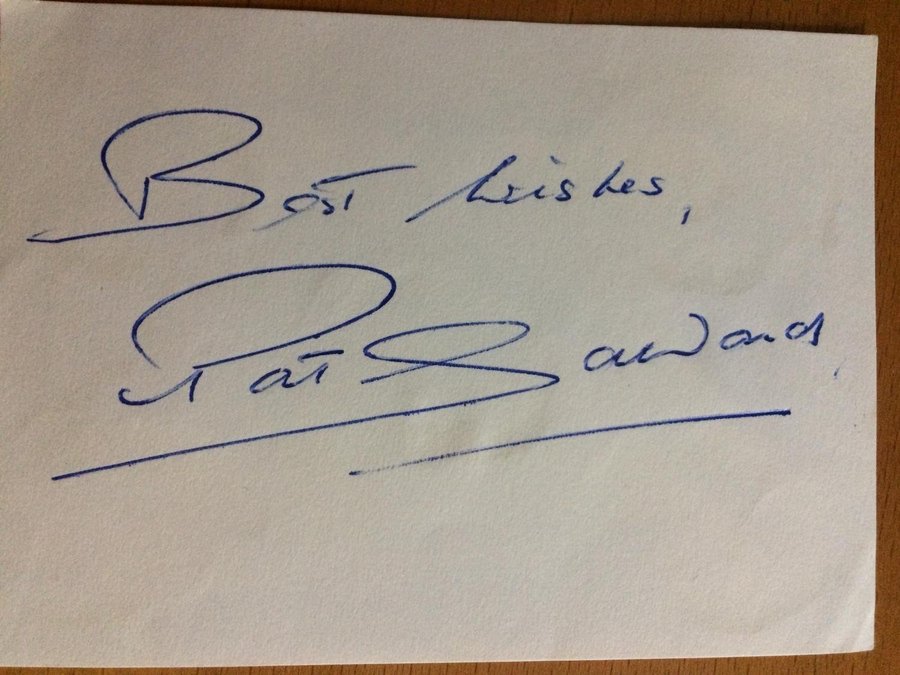 Best wishes,
Pat Saward